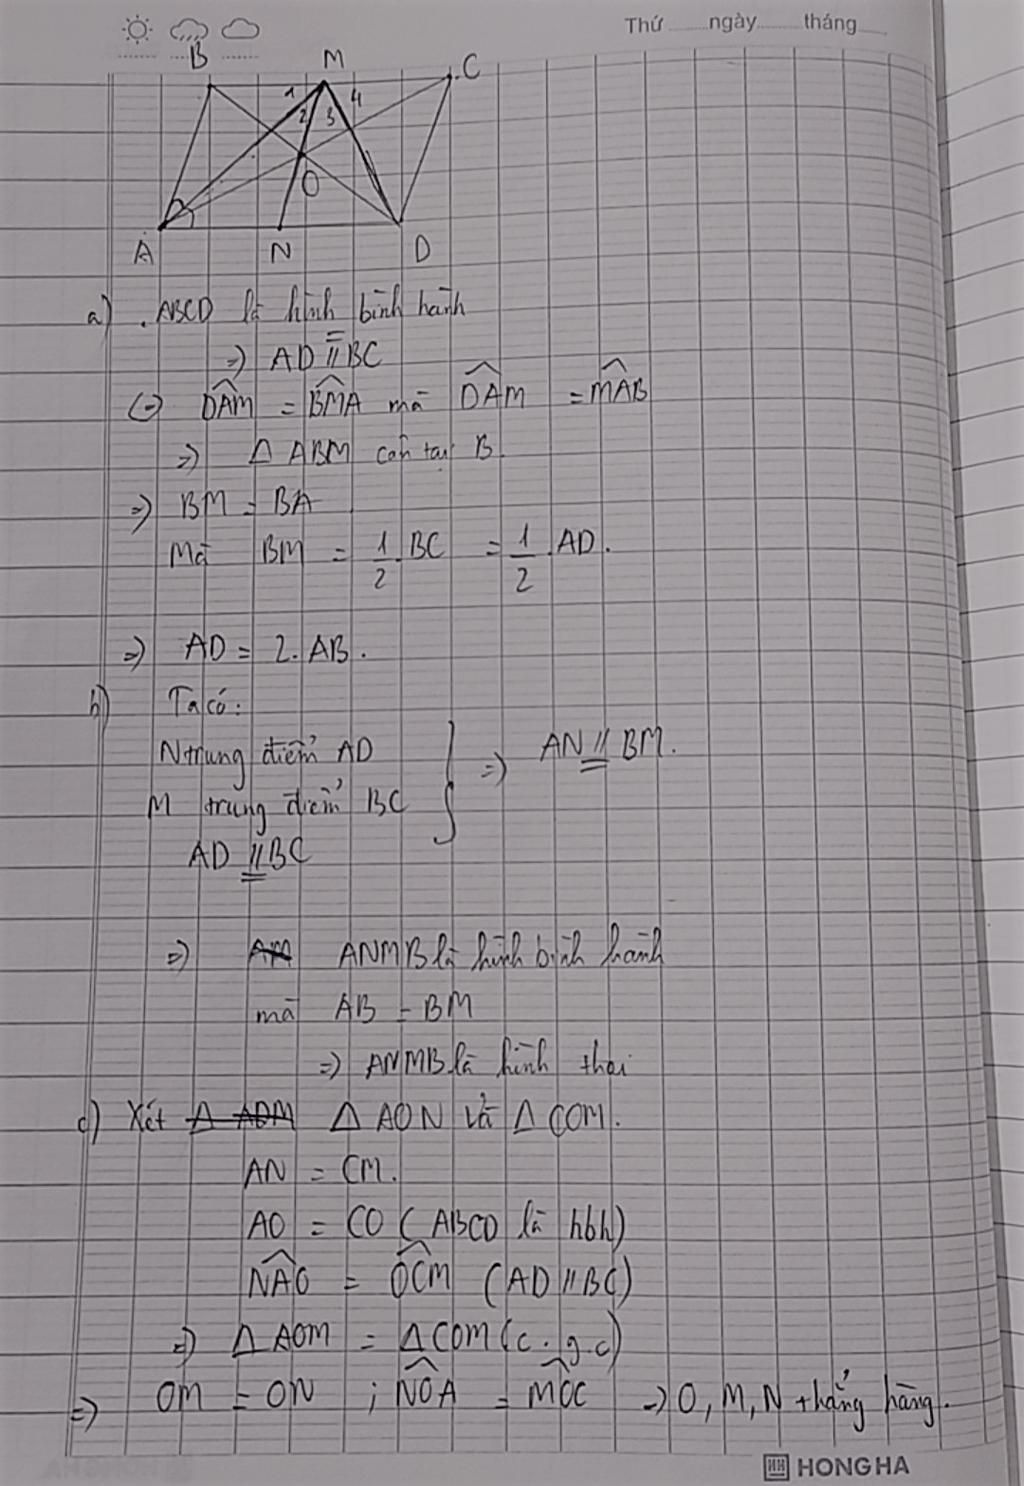 Thứ ........ngày........tháng........
B M C
1 2 3 4
O
A N D
a) . ABCD là hình bình hành
=> AD // BC
(=) DAM = BMA mà DAM = MAB
=> Δ ABM cân tại B.
=> BM = BA
Mà BM = 1/2 . BC = 1/2 . AD.
=> AD = 2. AB .
b) Ta có:
N trung điểm AD
M trung điểm BC
AD // BC
=> AN // BM.
=> AM ANMB là hình bình hành
mà AB = BM
=> ANMB là hình thoi
c) Xét Δ ADM Δ AON và Δ COM.
AN = CM.
AO = CO ( ABCD là hbh)
NAO = OCM (AD // BC)
=> Δ AOM = Δ COM (c . g .c)
=> OM = ON ; NOA = MOC => O, M, N thẳng hàng.
HH HONG HA